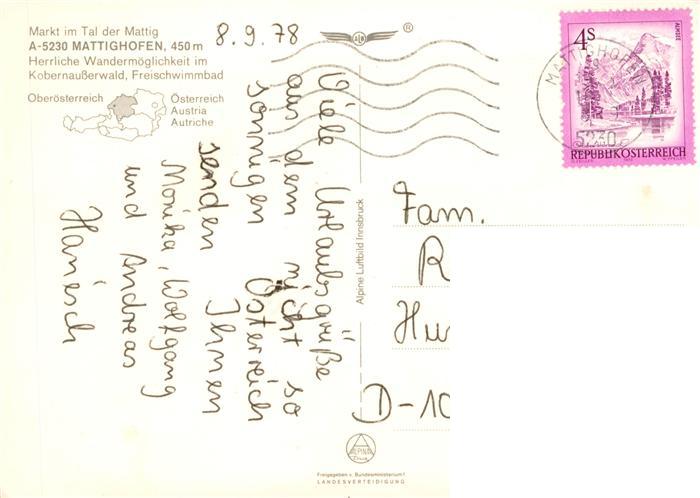 Markt im Tal der Mattig
A-5230 MATTIGHOFEN, 450 m
Herrliche Wandermöglichkeit im
Kobernaußerwald, Freischwimmbad
Oberösterreich
Österreich
Austria
Autriche
8.9.78
Viele Urlaubsgrüße
aus dem nicht so
sonnigen Österreich
senden Ihnen
Monika, Wolfgang
und Andreas
Hanisch
Alpine Luftbild Innsbruck
®
ALMSEE
4S
REPUBLIK ÖSTERREICH
MATTIGHOFEN
5230
Fam.
R
Hu
D-10
ALPINE
Freigegeben v. Bundesministerium f.
LANDESVERTEIDIGUNG